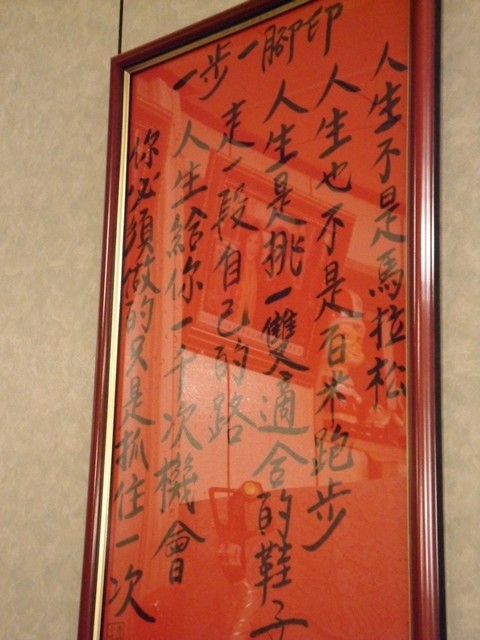 一步一腳印
人生不是馬拉松
人生也不是百米跑步
人生是挑一雙適合的鞋子
走一段自己的路
人生給你一千次機會
你必須做的只是抓住一次